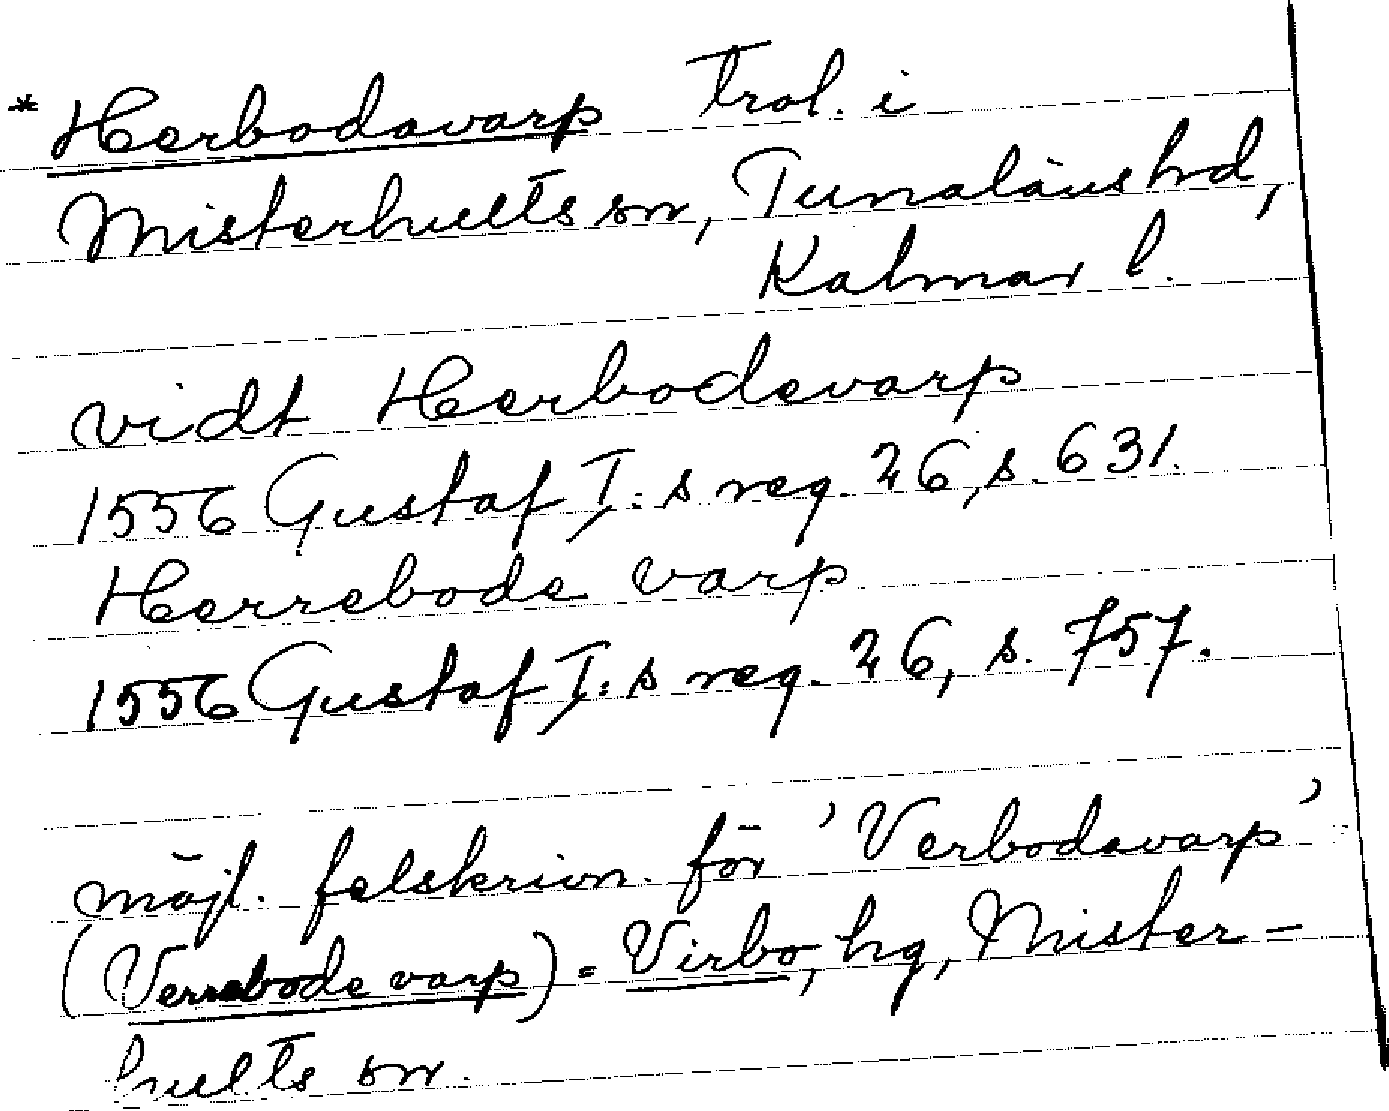 * Herbodavarp Trol. i
Misterhults sn, Tunaläns hd,
Kalmar l.
vidt Herbodevarp
1556 Gustaf I:s reg. 26, s. 631.
Herrebode varp
1556 Gustaf I:s reg. 26, s. 757.
möjl. felskrivn. för 'Verbodavarp'
(Verrebode varp) = Virbo, hg, Mister-
hults sn.